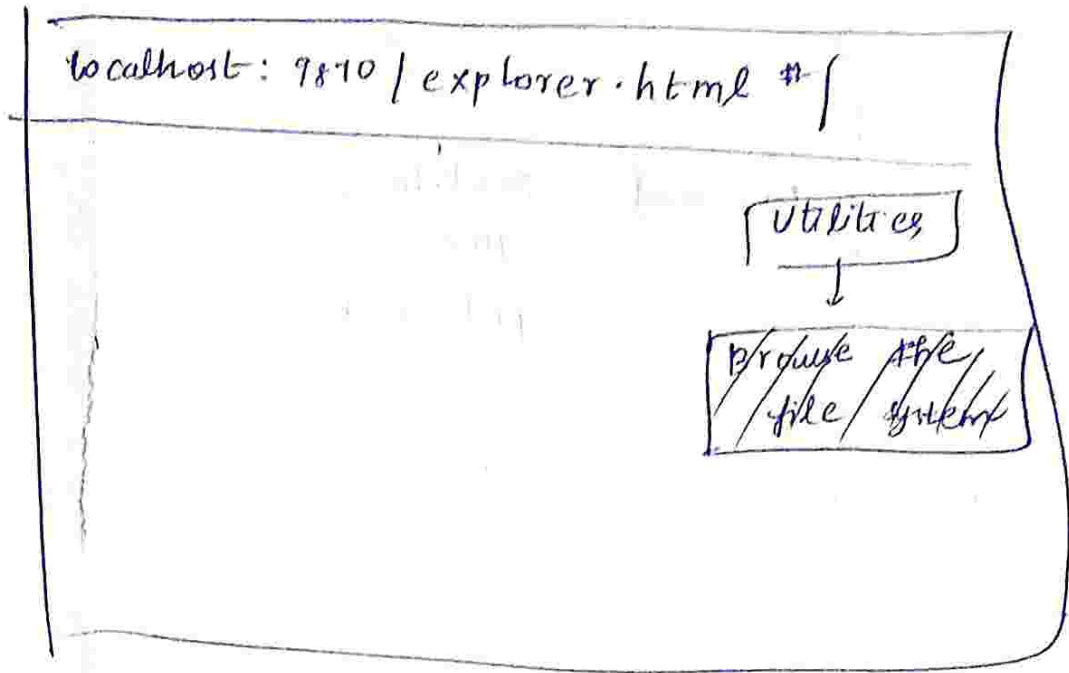 localhost: 9870 / explorer.html #/
Utilities
browse the
file system